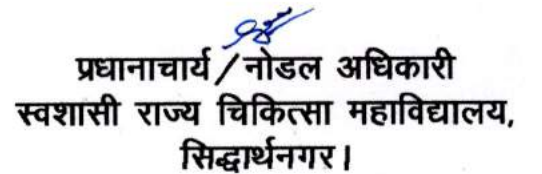 प्रधानाचार्य / नोडल अधिकारी
स्वशासी राज्य चिकित्सा महाविद्यालय,
सिद्धार्थनगर।